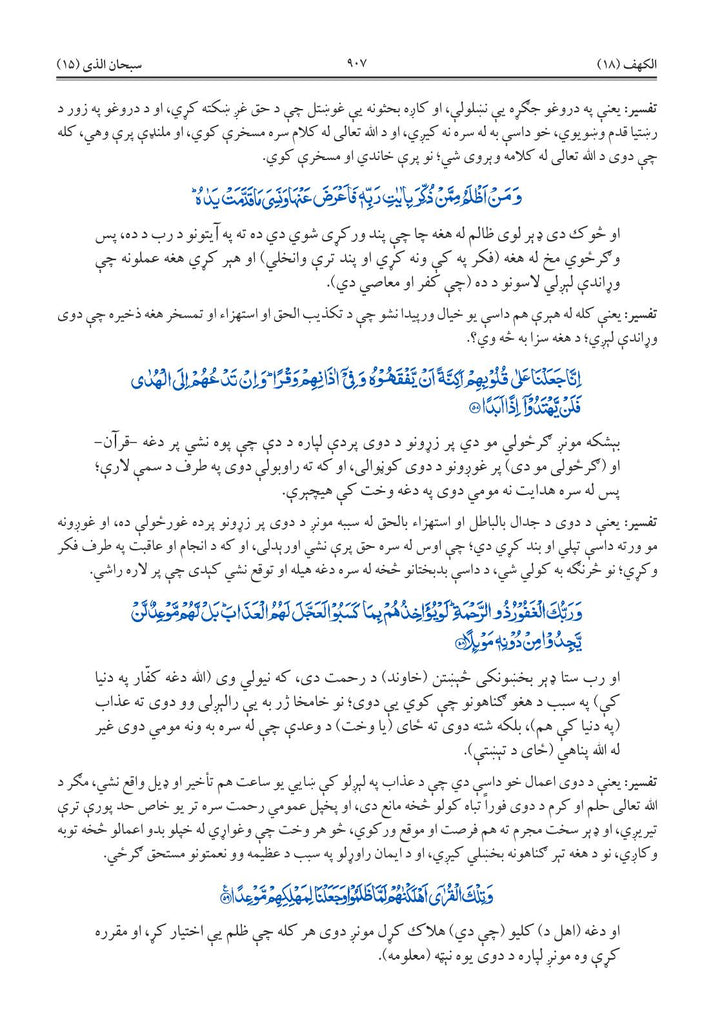 الکهف (١٨) ٩٠٧ سبحان الذی (١٥)
تفسیر: یعنې په دروغو جګړه یې نښلولې، او کاږه بحثونه یې غوښتل چې د حق غږ ښکته کړي، او د دروغو په زور د
رښتیا قدم وښویوي، خو داسې به له سره نه کیږي، او د الله تعالی له کلام سره مسخرې کوي، او ملنډې پرې وهي، کله
چې دوی د الله تعالی له کلامه وېروی شي؛ نو پرې خاندي او مسخرې کوي.
وَمَنْ اَظْلَمُ مِمَّنْ ذُكِّرَ بِاٰيٰتِ رَبِّهٖ فَاَعْرَضَ عَنْهَا وَنَسِیَ مَا قَدَّمَتْ يَدٰهُ ؕ
او څوك دی ډېر لوی ظالم له هغه چا چې پند ورکړی شوي دي ده ته په آیتونو د رب د ده، پس
وګرځوي مخ له هغه (فکر په کې ونه کړي او پند ترې وانخلي) او هېر کړي هغه عملونه چې
وړاندې لېږلي لاسونو د ده (چې کفر او معاصي دي).
تفسیر: یعنې کله له هېرې هم داسې یو خیال ورپیدا نشو چې د تکذیب الحق او استهزاء او تمسخر هغه ذخیره چې دوی
وړاندې لېږي؛ د هغه سزا به څه وي؟.
اِنَّا جَعَلْنَا عَلٰى قُلُوْبِهِمْ اَكِنَّةً اَنْ يَّفْقَهُوْهُ وَفِیْۤ اٰذَانِهِمْ وَقْرًا ؕ وَاِنْ تَدْعُهُمْ اِلَى الْهُدٰى
فَلَنْ يَّهْتَدُوْۤا اِذًا اَبَدًا ۝۵۷
بېشکه مونږ ګرځولي مو دي پر زړونو د دوی پردې لپاره د دې چې پوه نشي پر دغه –قرآن–
او (ګرځولی مو دی) پر غوږونو د دوی کوڼوالی، او که ته راوبولې دوی په طرف د سمې لارې؛
پس له سره هدایت نه مومي دوی په دغه وخت کې هیچېرې.
تفسیر: یعنې د دوی د جدال بالباطل او استهزاء بالحق له سببه مونږ د دوی پر زړونو پرده غورځولې ده، او غوږونه
مو ورته داسې تپلي او بند کړي دي؛ چې اوس له سره حق پرې نشي اورېدلی، او که د انجام او عاقبت په طرف فکر
وکړي؛ نو څرنګه به کولی شي، د داسې بدبختانو څخه له سره دغه هیله او توقع نشي کېدی چې پر لاره راشي.
وَرَبُّكَ الْغَفُوْرُ ذُو الرَّحْمَةِ ؕ لَوْ يُؤَاخِذُهُمْ بِمَا كَسَبُوْا لَعَجَّلَ لَهُمُ الْعَذَابَ ؕ بَلْ لَّهُمْ مَّوْعِدٌ لَّنْ
يَّجِدُوْا مِنْ دُوْنِهٖ مَوْىِٕلًا ۝۵۸
او رب ستا ډېر بخښونکی څېښتن (خاوند) د رحمت دی، که نیولي وی (الله دغه کفّار په دنیا
کې) په سبب د هغو ګناهونو چې کوي یې دوی؛ نو خامخا ژر به یې رالېږلی وو دوی ته عذاب
(په دنیا کې هم)، بلکه شته دوی ته ځای (یا وخت) د وعدې چې له سره به ونه مومي دوی غیر
له الله پناهي (ځای د تېښتې).
تفسیر: یعنې د دوی اعمال خو داسې دي چې د عذاب په لېږلو کې ښایي یو ساعت هم تأخیر او ډیل واقع نشي، مګر د
الله تعالی حلم او کرم د دوی فوراً تباه کولو څخه مانع دی، او پخپل عمومي رحمت سره تر یو خاص حد پورې ترې
تیریږي، او ډېر سخت مجرم ته هم فرصت او موقع ورکوي، څو هر وخت چې وغواړي له خپلو بدو اعمالو څخه توبه
وکاږي، نو د هغه تېر ګناهونه بخښلي کیږي، او د ایمان راوړلو په سبب د عظیمه وو نعمتونو مستحق ګرځي.
وَتِلْكَ الْقُرٰۤى اَهْلَكْنٰهُمْ لَمَّا ظَلَمُوْا وَجَعَلْنَا لِمَهْلِكِهِمْ مَّوْعِدًا ۝۵۹
او دغه (اهل د) کلیو (چې دي) هلاك کړل مونږ دوی هر کله چې ظلم یې اختیار کړ، او مقرره
کړې وه مونږ لپاره د دوی یوه نېټه (معلومه).